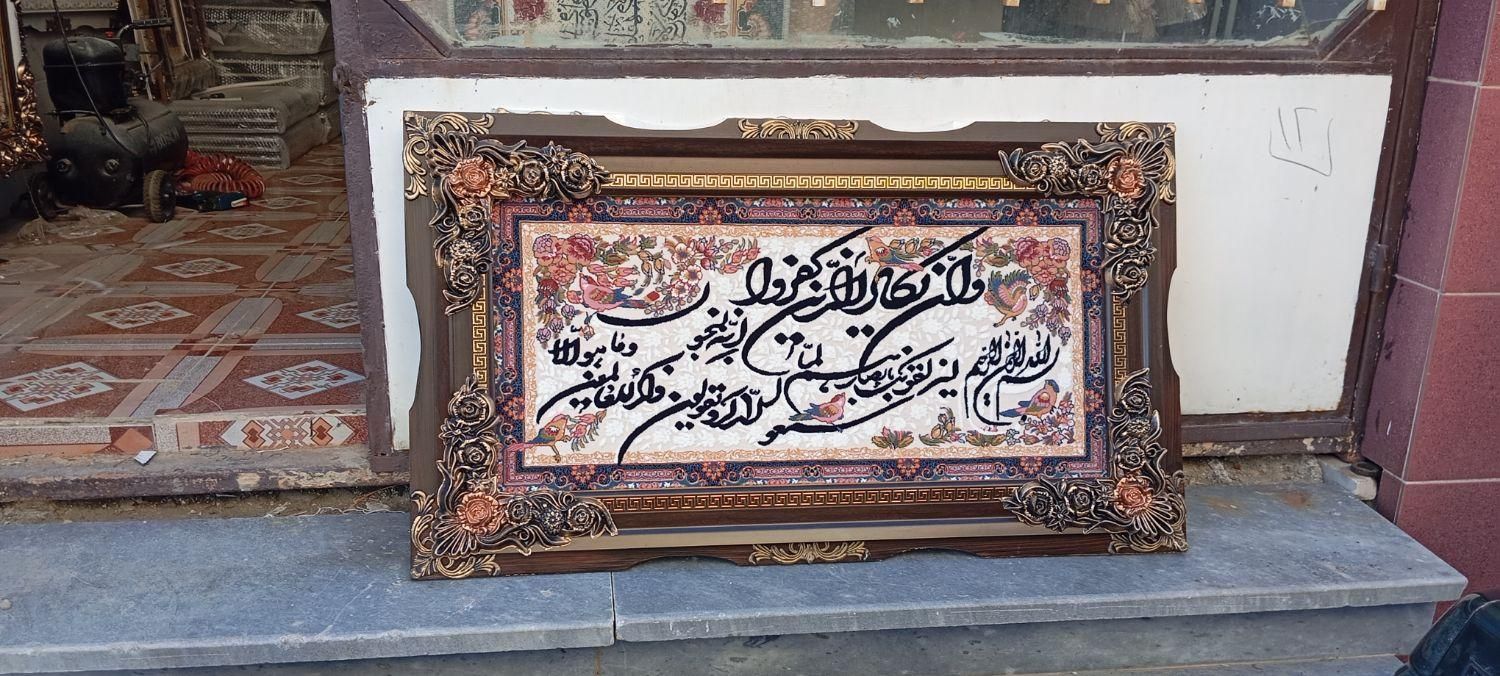 بسم الله الرحمن الرحیم
وان یکاد الذین کفروا
لیزلقونک بابصارهم لما
سمعوا الذکر و یقولون
انه لمجنون
وما هو الا
ذکر للعالمین
۱۲